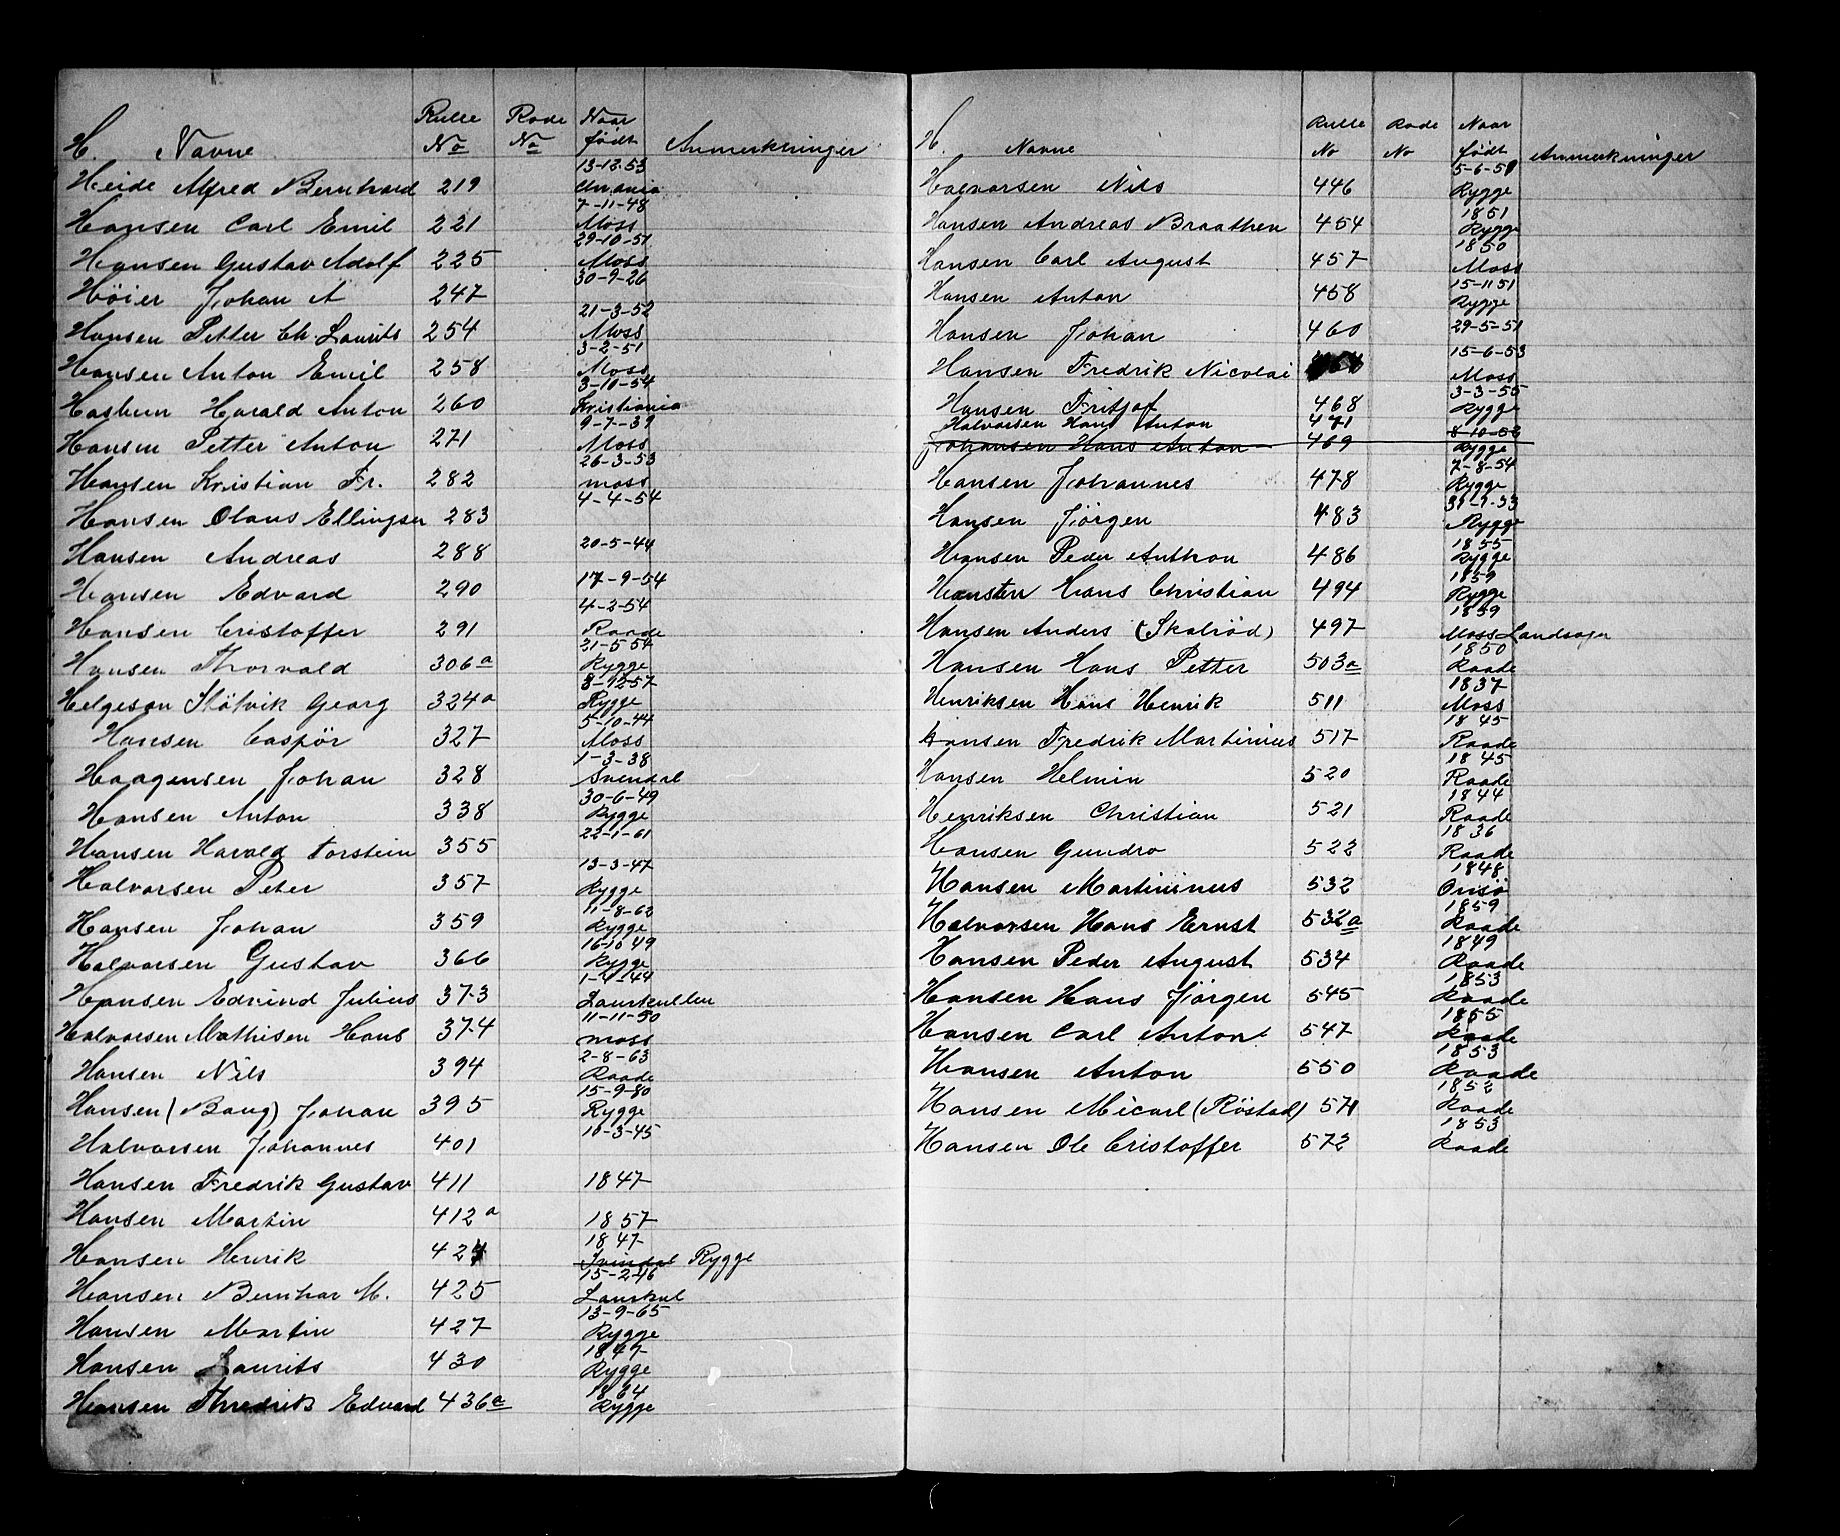 H. Navne Rulle No Rode No Naar født Anmerkninger
13-12-53
Heide Alfred Bernhard 219
7-11-48
Hansen Carl Emil 221 Moss
29-10-51
Hansen Gustav Adolf 225 Moss
30-9-26
Höier Johan A 247
21-3-52
Hansen Petter Ch. Laurits 254 Moss
3-2-51
Hansen Anton Emil 258 Moss
3-10-54
Harald Anton 260 Kristiania
9-7-39
Hansen Petter Anton 271 Moss
26-3-53
Hansen Kristian Fr. 282 moss
4-4-54
Hansen Olaus Ellingsen 283
20-5-44
Hansen Andreas 288
17-9-54
Hansen Edvard 290
4-2-54
Hansen Cristoffer 291 Raade
21-5-54
Hansen Thorvald 306a Rygge
8-12-57
Helgeson Georg 324a Rygge
5-10-44
Hansen Caspör 327 Moss
1-3-38
Haagensen Johan 328 Svendal
30-6-49
Hansen Anton 338 Rygge
22-1-61
Hansen Harald Torstein 355
13-3-47
Halvorsen Peter 357 Rygge
11-8-62
Hansen Johan 359 Rygge
16-10 49
Halvorsen Gustav 366 Rygge
1-4-44
Hansen Edvind Julius 373 Laurkullen
11-11-50
Halvorsen Mathisen Hans 374 moss
2-8-63
Hansen Nils 394 Raade
15-9-80
Hansen (Baug) Johan 395 Rygge
10-3-45
Halvorsen Johannes 401
Hansen Fredrik Gustav 411 1847
Hansen Martin 412a 1857
1847
Hansen Henrik 424 Svindal Rygge
15-2-46
Hansen Bernhar M. 425 Laurkul
13-9-65
Hansen Martin 427 Rygge
1847
Hansen Laurits 430 Rygge
1864
Hansen Thredrik Edvard 436a Rygge
H. Navne Rulle No Rode No Naar født Anmerkninger
5-6-51
Halvorsen Nils 446 Rygge
1851
Hansen Andreas Braathen 454 Rygge
1850
Hansen Carl August 457 Moss
15-11 51
Hansen Anton 458 Rygge
Hansen Johan 460 29-5-51
15-6-53
Hansen Fredrik Nicolai Moss
3-3-55
Hansen Fritjof 468 Rygge
Halvorsen Hans Anton 471 8-10-52
Johansen Hans Anton 469 Rygge
7-8-54
Hansen Johannes 478 Rygge
Hansen Jörgen 483 Rygge
1855
Hansen Peder Anthon 486 Rygge
1859
Hansten Hans Christian 494 Rygge
1859
Hansen Anders (Skalröd) 497 Moss Landsogn
1850
Hansen Hans Petter 503a Raade
1837
Henriksen Hans Henrik 511 Moss
1845
Hansen Fredrik Martinius 517 Raade
1845
Hansen Helmin 520 Raade
1844
Henriksen Christian 521 Raade
1836
Hansen Gundro 522 Raade
1848
Hansen Martininus 532 Onsö
1859
Halvorsen Hans Ernst 532a Raade
1849
Hansen Peder August 534 Raade
1853
Hansen Hans Jörgen 545 Raade
1855
Hansen Carl Anton 547 Raade
1853
Hansen Anton 550 Raade
1852
Hansen Micarl (Röstad) 571 Raade
1853
Hansen Ole Cristoffer 572 Raade